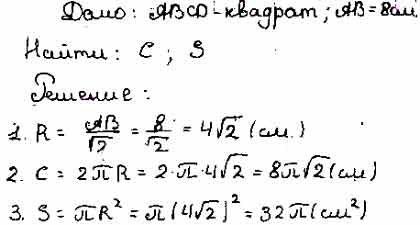 Дано: ABCD - квадрат; AB = 8 см.
Найти: C; S
Решение:
1. R = AB/√2 = 8/√2 = 4√2 (см.)
2. C = 2πR = 2·π·4√2 = 8π√2 (см)
3. S = πR² = π(4√2)² = 32π (см²)